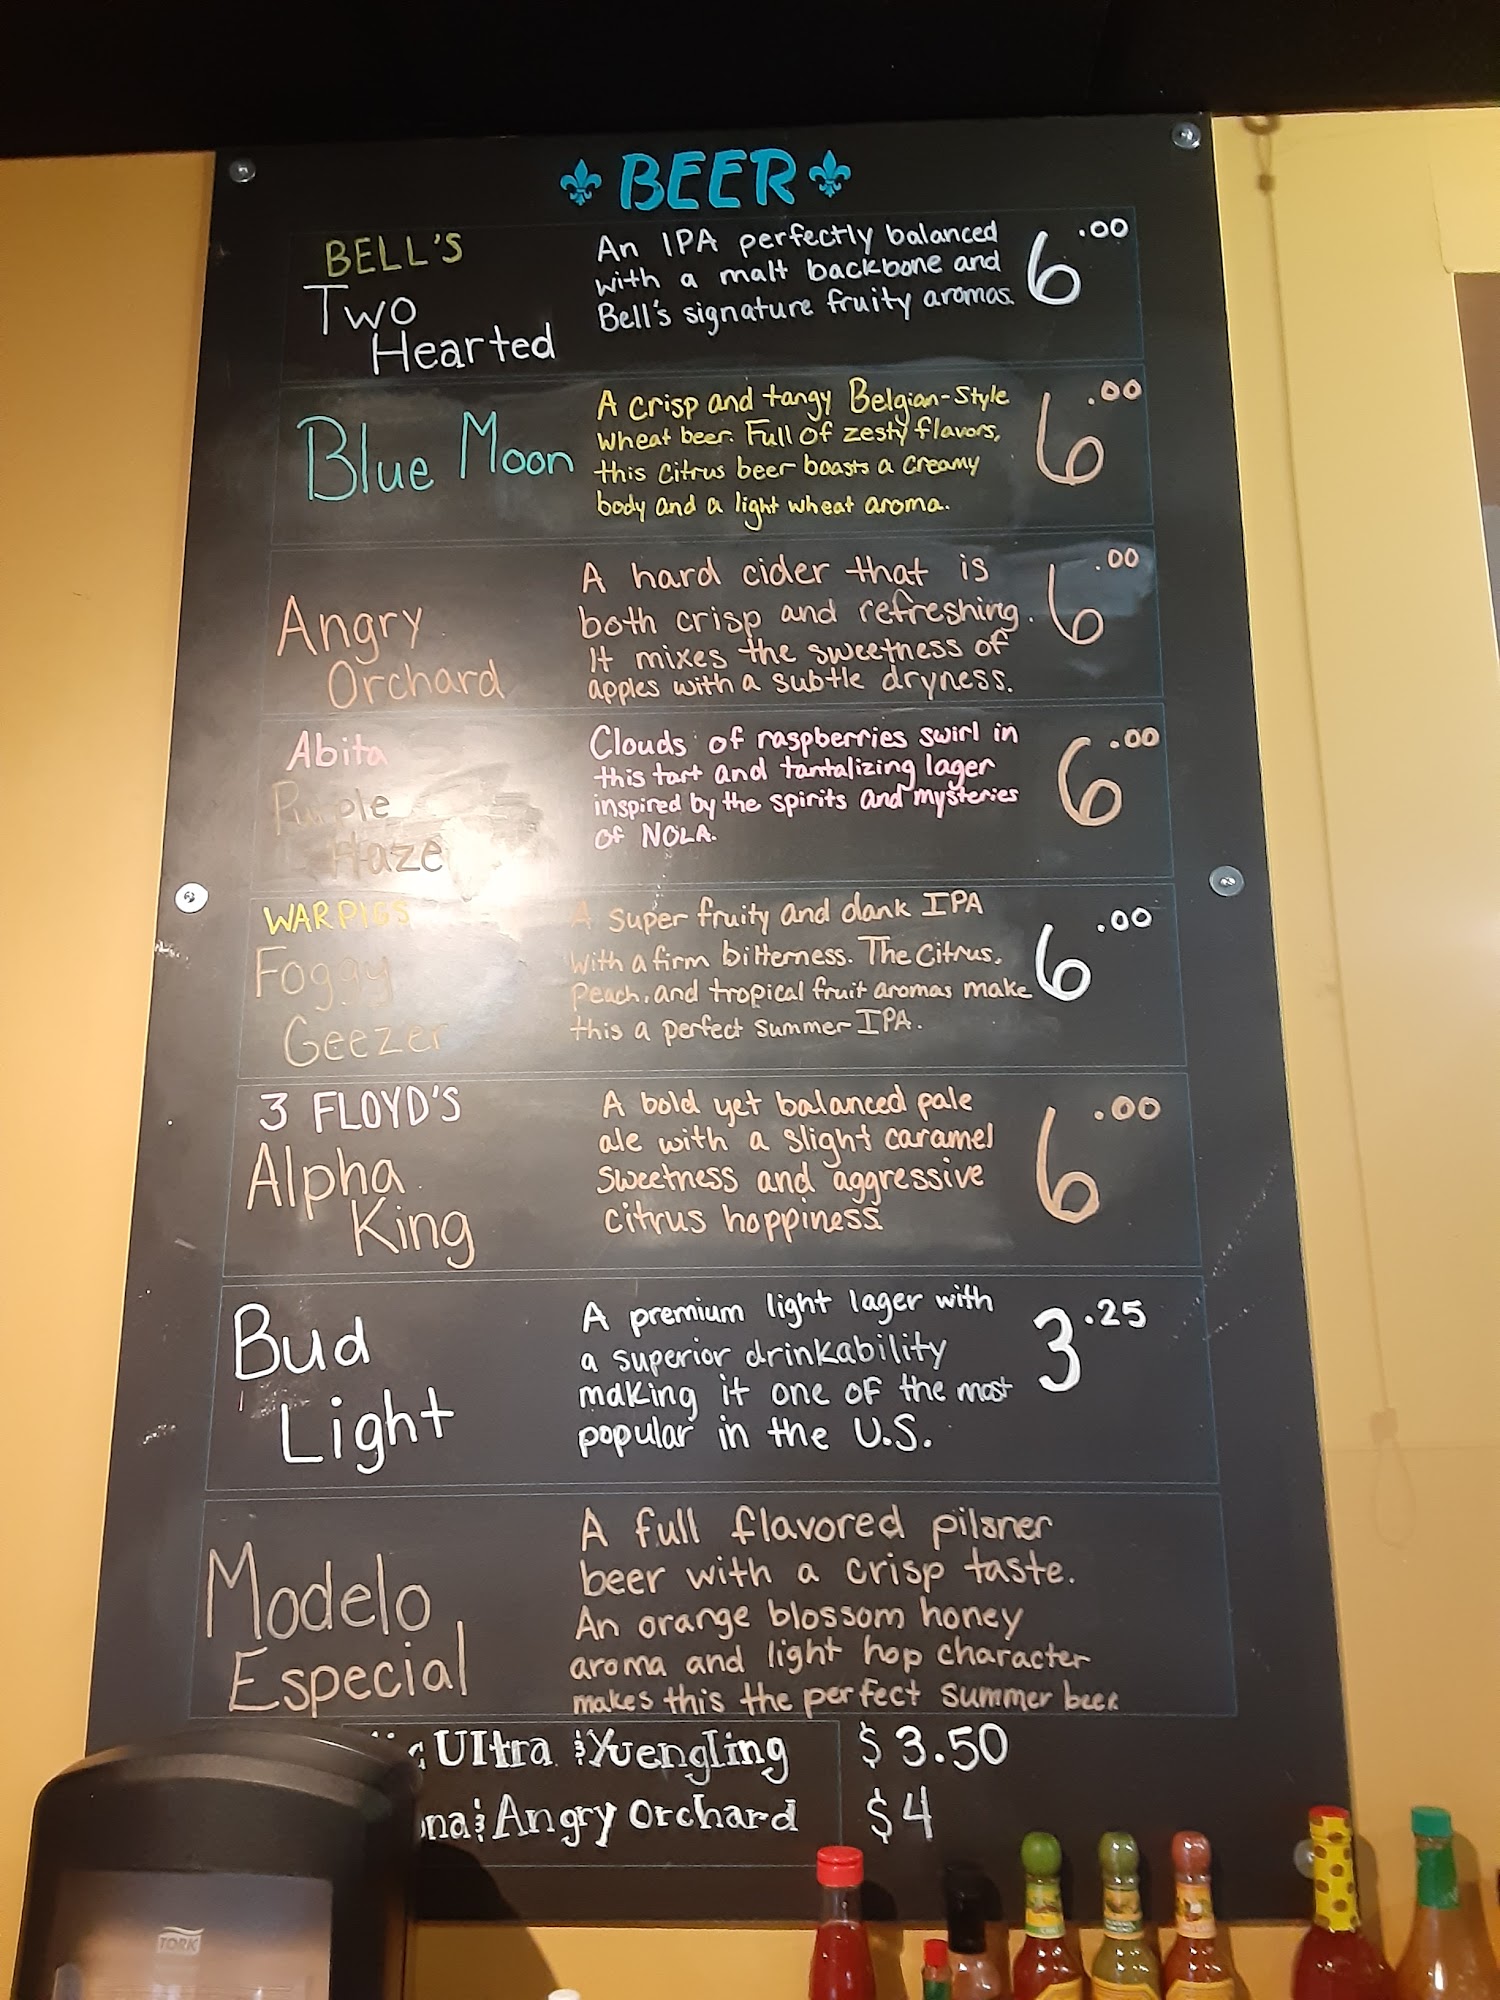 BEER
BELL'S
Two
Hearted
An IPA perfectly balanced
with a malt backbone and
Bell's signature fruity aromas.
6.00
Blue Moon
A crisp and tangy Belgian-Style
wheat beer. Full of zesty flavors,
this citrus beer boasts a creamy
body and a light wheat aroma.
6.00
Angry
Orchard
A hard cider that is
both crisp and refreshing.
It mixes the sweetness of
apples with a subtle dryness.
6.00
Abita
Purple
Haze
Clouds of raspberries swirl in
this tart and tantalizing lager
inspired by the spirits and mysteries
of NOLA.
6.00
WARPIGS
Foggy
Geezer
A super fruity and dank IPA
with a firm bitterness. The citrus,
peach, and tropical fruit aromas make
this a perfect summer IPA.
6.00
3 FLOYD'S
Alpha
King
A bold yet balanced pale
ale with a slight caramel
sweetness and aggressive
citrus hoppiness.
6.00
Bud
Light
A premium light lager with
a superior drinkability
making it one of the most
popular in the U.S.
3.25
Modelo
Especial
A full flavored pilsner
beer with a crisp taste.
An orange blossom honey
aroma and light hop character
makes this the perfect summer beer.
Ultra & Yuengling $3.50
& Angry Orchard $4
TORK